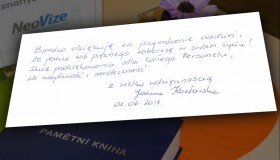 znanym
NeoVize
Bardzo dziękuję za przywrócenie nadziei,
że jeszcze coś pięknego zobaczę w swoim życiu.
Duże podziękowania dla całego Personelu,
za wrażliwość i serdeczność.
z wielką wdzięcznością
Joanna
02.06.2017
PAMĚTNÍ KNIHA